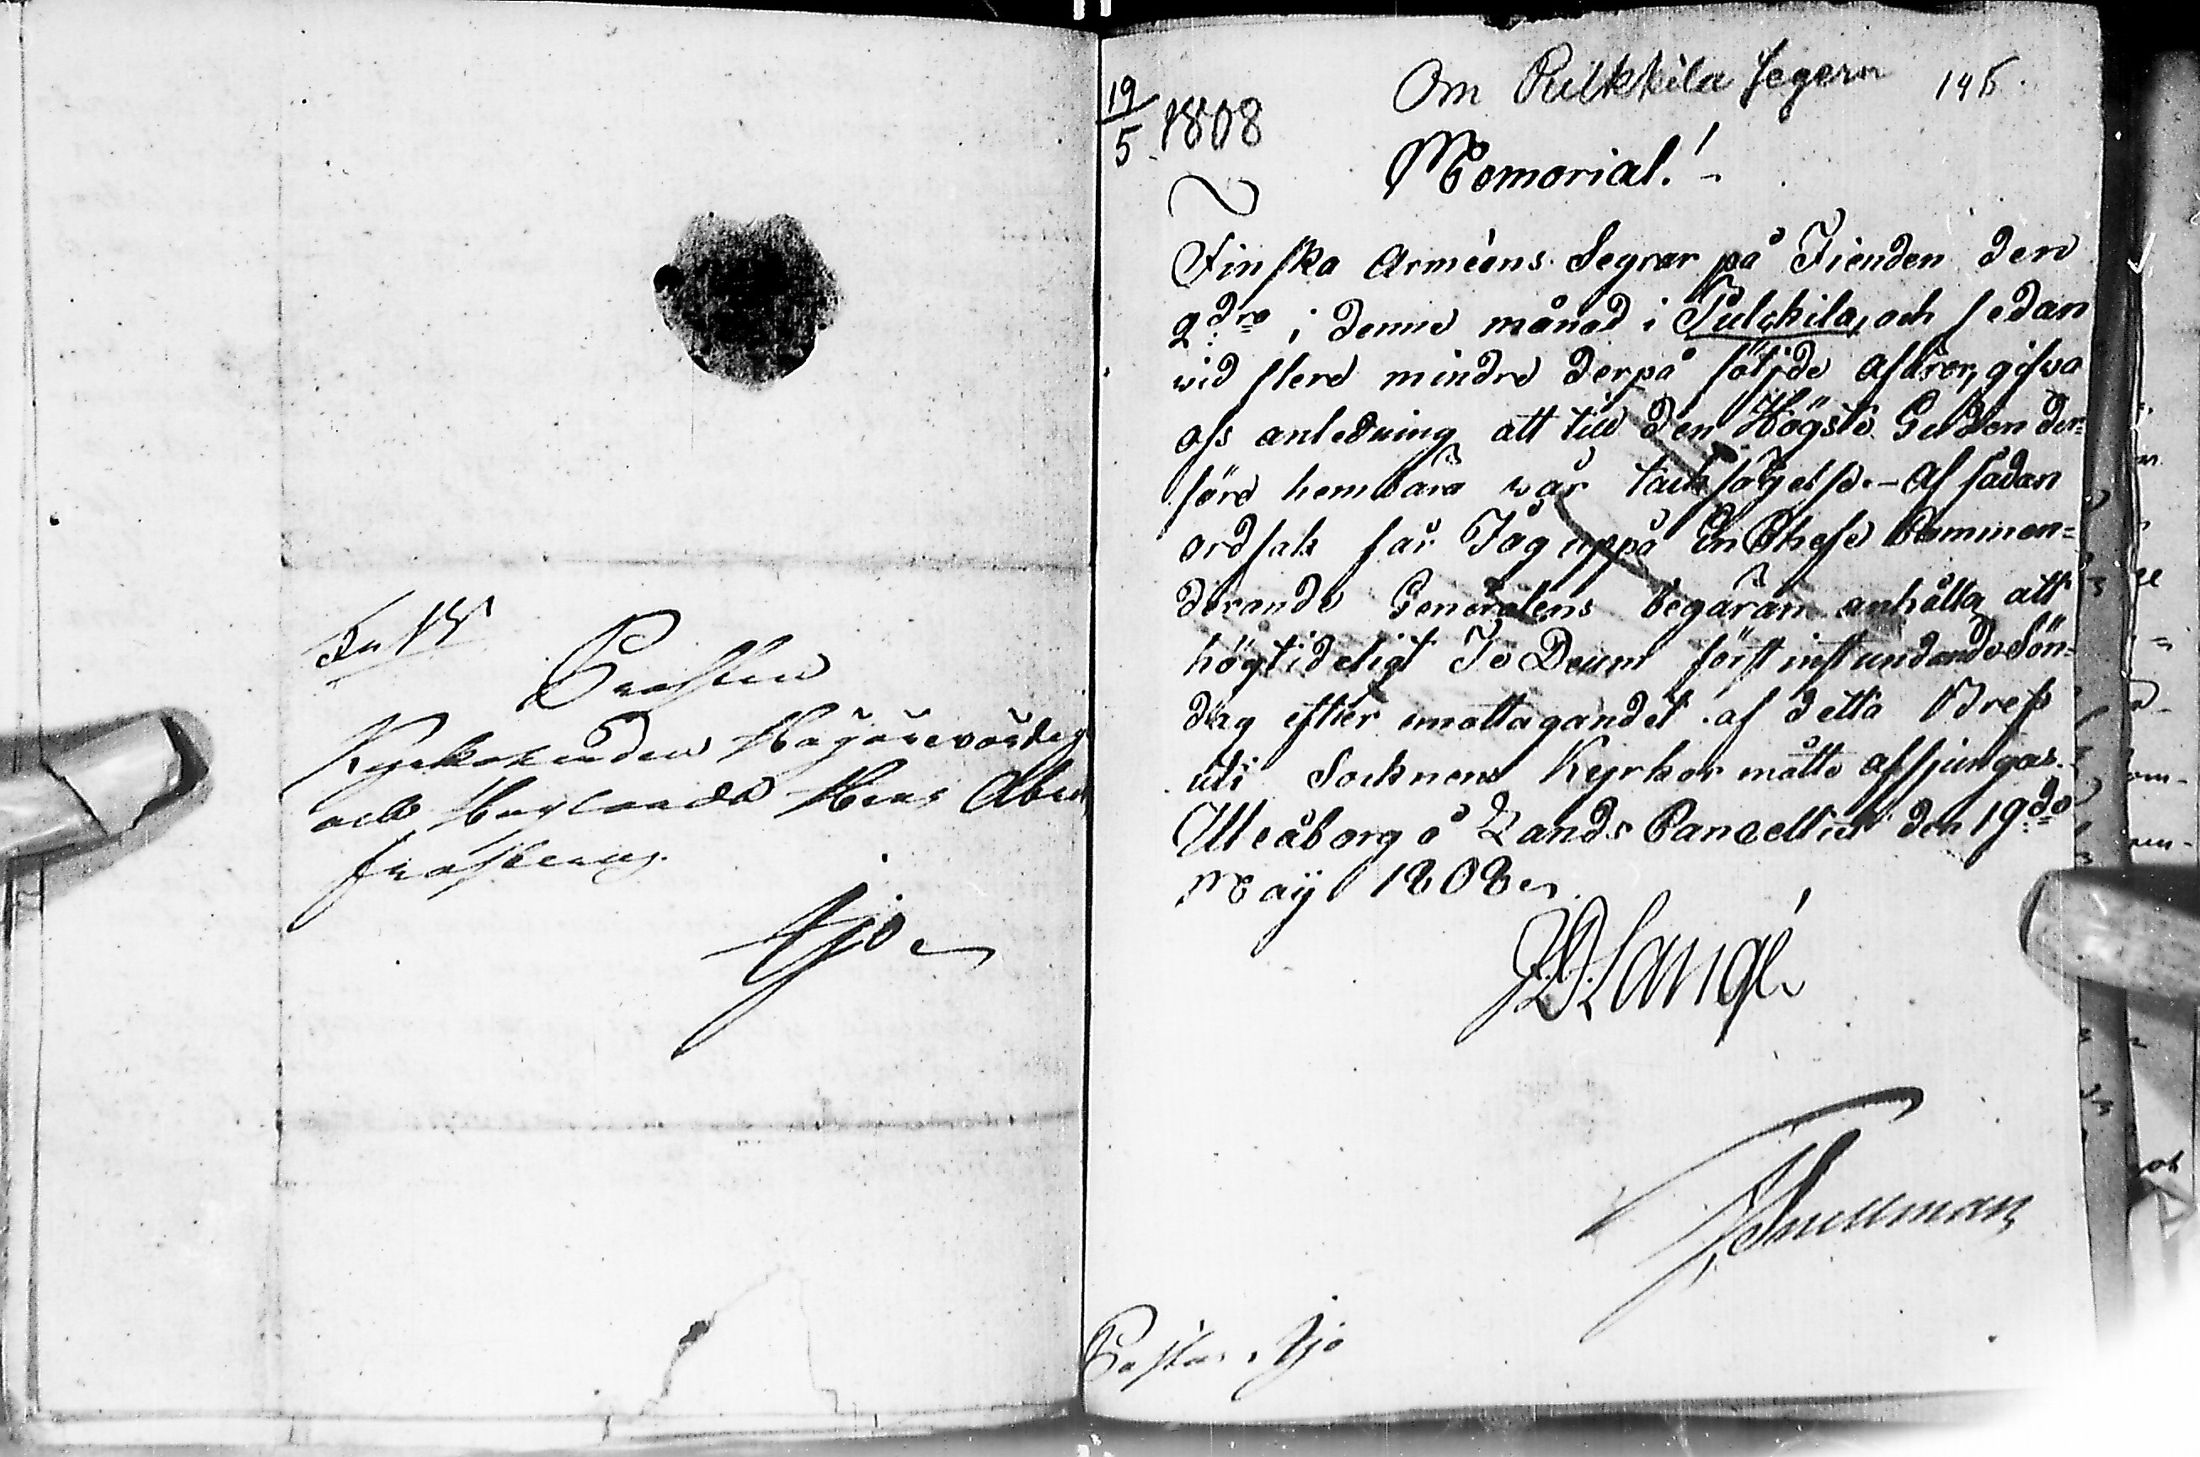 Prosten
Kyrkoherden Högärevördig
och Höglärde Herr Abr.
Frosterus
Ijo
19/5 1808
Om Pulkkila segern 145.
Memorial!
Finska Arméens Segrar på Fienden den
2dra i denne månad i Pulckila, och sedan
wid flere mindre derpå följde affärer, gifva
oss anledning att till den Högste Guden der=
före hembära wår tacksäjelse. - Af sådan
ordsak får Jag uppå En Chefe Commen=
derande Generalens begäran anhålla att
högtideligt Te Deum först instundande Sön=
dag efter emottagandet af detta Bref
uti Socknens Kyrkor måtte afsjungas.
Uleåborg å Lands Cancelliet den 19de
Maij 1808.
JD Langé
Snellman
Pastor i Ijo